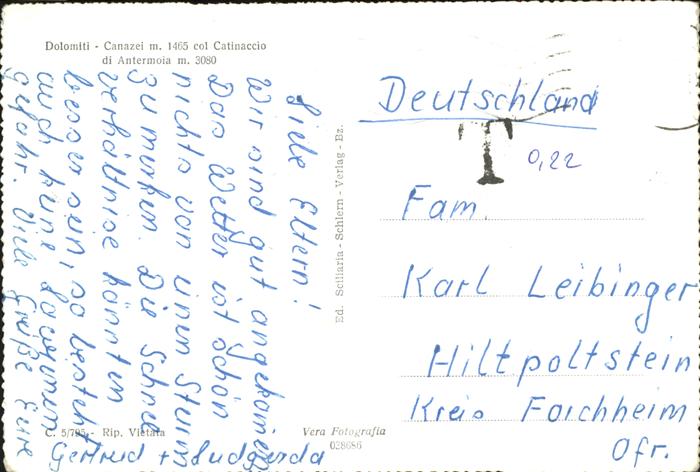 Dolomiti - Canazei m. 1465 col Catinaccio
di Antermoia m. 3080
Liebe Eltern!
Wir sind gut angekommen
Das Wetter ist schön
nichts von einem Sturm
zu merken. Die Schnee
verhältnise könnten
besser sein, so besteht
auch keine Lawinen
gefahr. Viele Grüße Eure
Gertrud + Ludgerda
C. 5/795 - Rip. Vietata
Vera Fotografia
028686
Ed. Sciliaria - Schlern - Verlag - Bz.
Deutschland
T
0,22
Fam.
Karl Leibinger
Hiltpoltstein
Kreis Forchheim
Ofr.